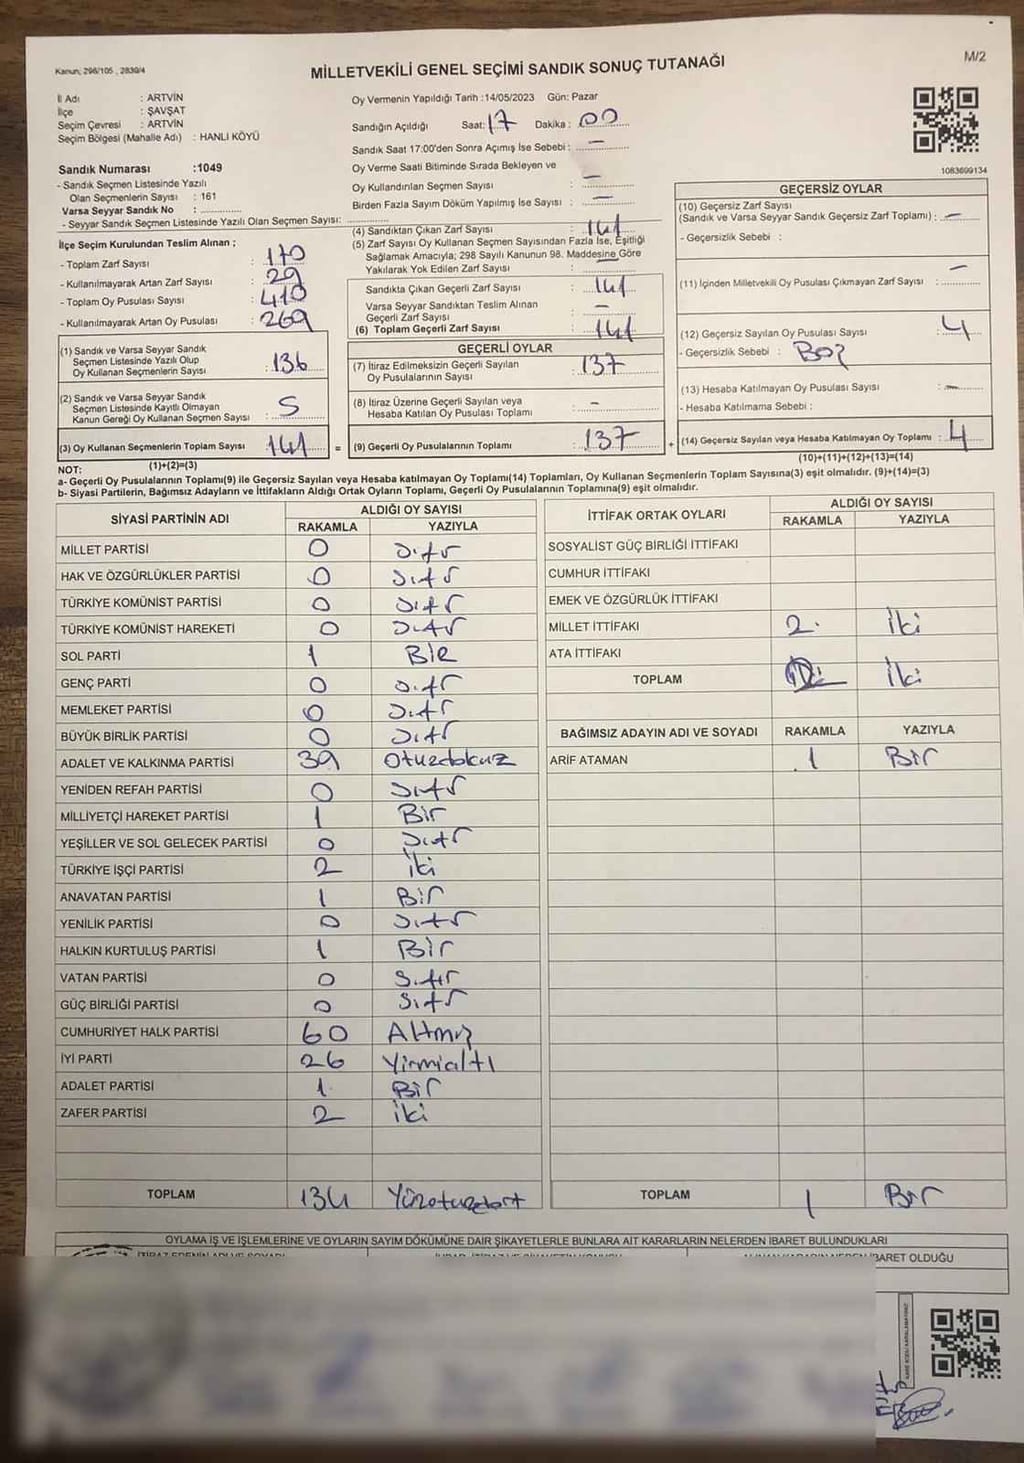 Kanun; 298/105 , 2839/4
MİLLETVEKİLİ GENEL SEÇİMİ SANDIK SONUÇ TUTANAĞI
M/2
İl Adı : ARTVİN
İlçe : ŞAVŞAT
Seçim Çevresi : ARTVİN
Seçim Bölgesi (Mahalle Adı) : HANLI KÖYÜ
Sandık Numarası :1049
- Sandık Seçmen Listesinde Yazılı
Olan Seçmenlerin Sayısı : 161
Varsa Seyyar Sandık No :
- Seyyar Sandık Seçmen Listesinde Yazılı Olan Seçmen Sayısı:
İlçe Seçim Kurulundan Teslim Alınan ;
- Toplam Zarf Sayısı : 170
- Kullanılmayarak Artan Zarf Sayısı : 29
- Toplam Oy Pusulası Sayısı : 410
- Kullanılmayarak Artan Oy Pusulası : 269
(1) Sandık ve Varsa Seyyar Sandık
Seçmen Listesinde Yazılı Olup
Oy Kullanan Seçmenlerin Sayısı : 136
(2) Sandık ve Varsa Seyyar Sandık
Seçmen Listesinde Kayıtlı Olmayan
Kanun Gereği Oy Kullanan Seçmen Sayısı : 5
(3) Oy Kullanan Seçmenlerin Toplam Sayısı 141 =
(1)+(2)=(3)
Oy Vermenin Yapıldığı Tarih :14/05/2023 Gün: Pazar
Sandığın Açıldığı Saat: 17 Dakika : 00
Sandık Saat 17:00'den Sonra Açımış İse Sebebi : —
Oy Verme Saati Bitiminde Sırada Bekleyen ve
Oy Kullandırılan Seçmen Sayısı : —
Birden Fazla Sayım Döküm Yapılmış İse Sayısı : —
(4) Sandıktan Çıkan Zarf Sayısı : 141
(5) Zarf Sayısı Oy Kullanan Seçmen Sayısından Fazla İse, Eşitliği
Sağlamak Amacıyla; 298 Sayılı Kanunun 98. Maddesine Göre
Yakılarak Yok Edilen Zarf Sayısı : —
Sandıkta Çıkan Geçerli Zarf Sayısı : 141
Varsa Seyyar Sandıktan Teslim Alınan
Geçerli Zarf Sayısı : —
(6) Toplam Geçerli Zarf Sayısı : 141
GEÇERLİ OYLAR
(7) İtiraz Edilmeksizin Geçerli Sayılan
Oy Pusulalarının Sayısı : 137
(8) İtiraz Üzerine Geçerli Sayılan veya
Hesaba Katılan Oy Pusulası Toplamı : -
(9) Geçerli Oy Pusulalarının Toplamı : 137 +
1083699134
GEÇERSİZ OYLAR
(10) Geçersiz Zarf Sayısı
(Sandık ve Varsa Seyyar Sandık Geçersiz Zarf Toplamı) : —
- Geçersizlik Sebebi :
(11) İçinden Milletvekili Oy Pusulası Çıkmayan Zarf Sayısı : —
(12) Geçersiz Sayılan Oy Pusulası Sayısı : 4
- Geçersizlik Sebebi : Boş
(13) Hesaba Katılmayan Oy Pusulası Sayısı : —
- Hesaba Katılmama Sebebi :
(14) Geçersiz Sayılan veya Hesaba Katılmayan Oy Toplamı : 4
(10)+(11)+(12)+(13)=(14)
NOT:
a- Geçerli Oy Pusulalarının Toplamı(9) ile Geçersiz Sayılan veya Hesaba katılmayan Oy Toplamı(14) Toplamları, Oy Kullanan Seçmenlerin Toplam Sayısına(3) eşit olmalıdır. (9)+(14)=(3)
b- Siyasi Partilerin, Bağımsız Adayların ve İttifakların Aldığı Ortak Oyların Toplamı, Geçerli Oy Pusulalarının Toplamına(9) eşit olmalıdır.
SİYASİ PARTİNİN ADI ALDIĞI OY SAYISI
RAKAMLA YAZIYLA
MİLLET PARTİSİ 0 Sıfır
HAK VE ÖZGÜRLÜKLER PARTİSİ 0 Sıfır
TÜRKİYE KOMÜNİST PARTİSİ 0 Sıfır
TÜRKİYE KOMÜNİST HAREKETİ 0 Sıfır
SOL PARTİ 1 Bir
GENÇ PARTİ 0 Sıfır
MEMLEKET PARTİSİ 0 Sıfır
BÜYÜK BİRLİK PARTİSİ 0 Sıfır
ADALET VE KALKINMA PARTİSİ 39 Otuzdokuz
YENİDEN REFAH PARTİSİ 0 Sıfır
MİLLİYETÇİ HAREKET PARTİSİ 1 Bir
YEŞİLLER VE SOL GELECEK PARTİSİ 0 Sıfır
TÜRKİYE İŞÇİ PARTİSİ 2 İki
ANAVATAN PARTİSİ 1 Bir
YENİLİK PARTİSİ 0 Sıfır
HALKIN KURTULUŞ PARTİSİ 1 Bir
VATAN PARTİSİ 0 Sıfır
GÜÇ BİRLİĞİ PARTİSİ 0 Sıfır
CUMHURİYET HALK PARTİSİ 60 Altmış
İYİ PARTİ 26 Yirmialtı
ADALET PARTİSİ 1 Bir
ZAFER PARTİSİ 2 İki
TOPLAM 134 Yüzotuzdört
İTTİFAK ORTAK OYLARI ALDIĞI OY SAYISI
RAKAMLA YAZIYLA
SOSYALİST GÜÇ BİRLİĞİ İTTİFAKI
CUMHUR İTTİFAKI
EMEK VE ÖZGÜRLÜK İTTİFAKI
MİLLET İTTİFAKI 2 İki
ATA İTTİFAKI
TOPLAM İki
BAĞIMSIZ ADAYIN ADI VE SOYADI RAKAMLA YAZIYLA
ARİF ATAMAN 1 Bir
TOPLAM 1 Bir
OYLAMA İŞ VE İŞLEMLERİNE VE OYLARIN SAYIM DÖKÜMÜNE DAİR ŞİKAYETLERLE BUNLARA AİT KARARLARIN NELERDEN İBARET BULUNDUKLARI
İBARET OLDUĞU